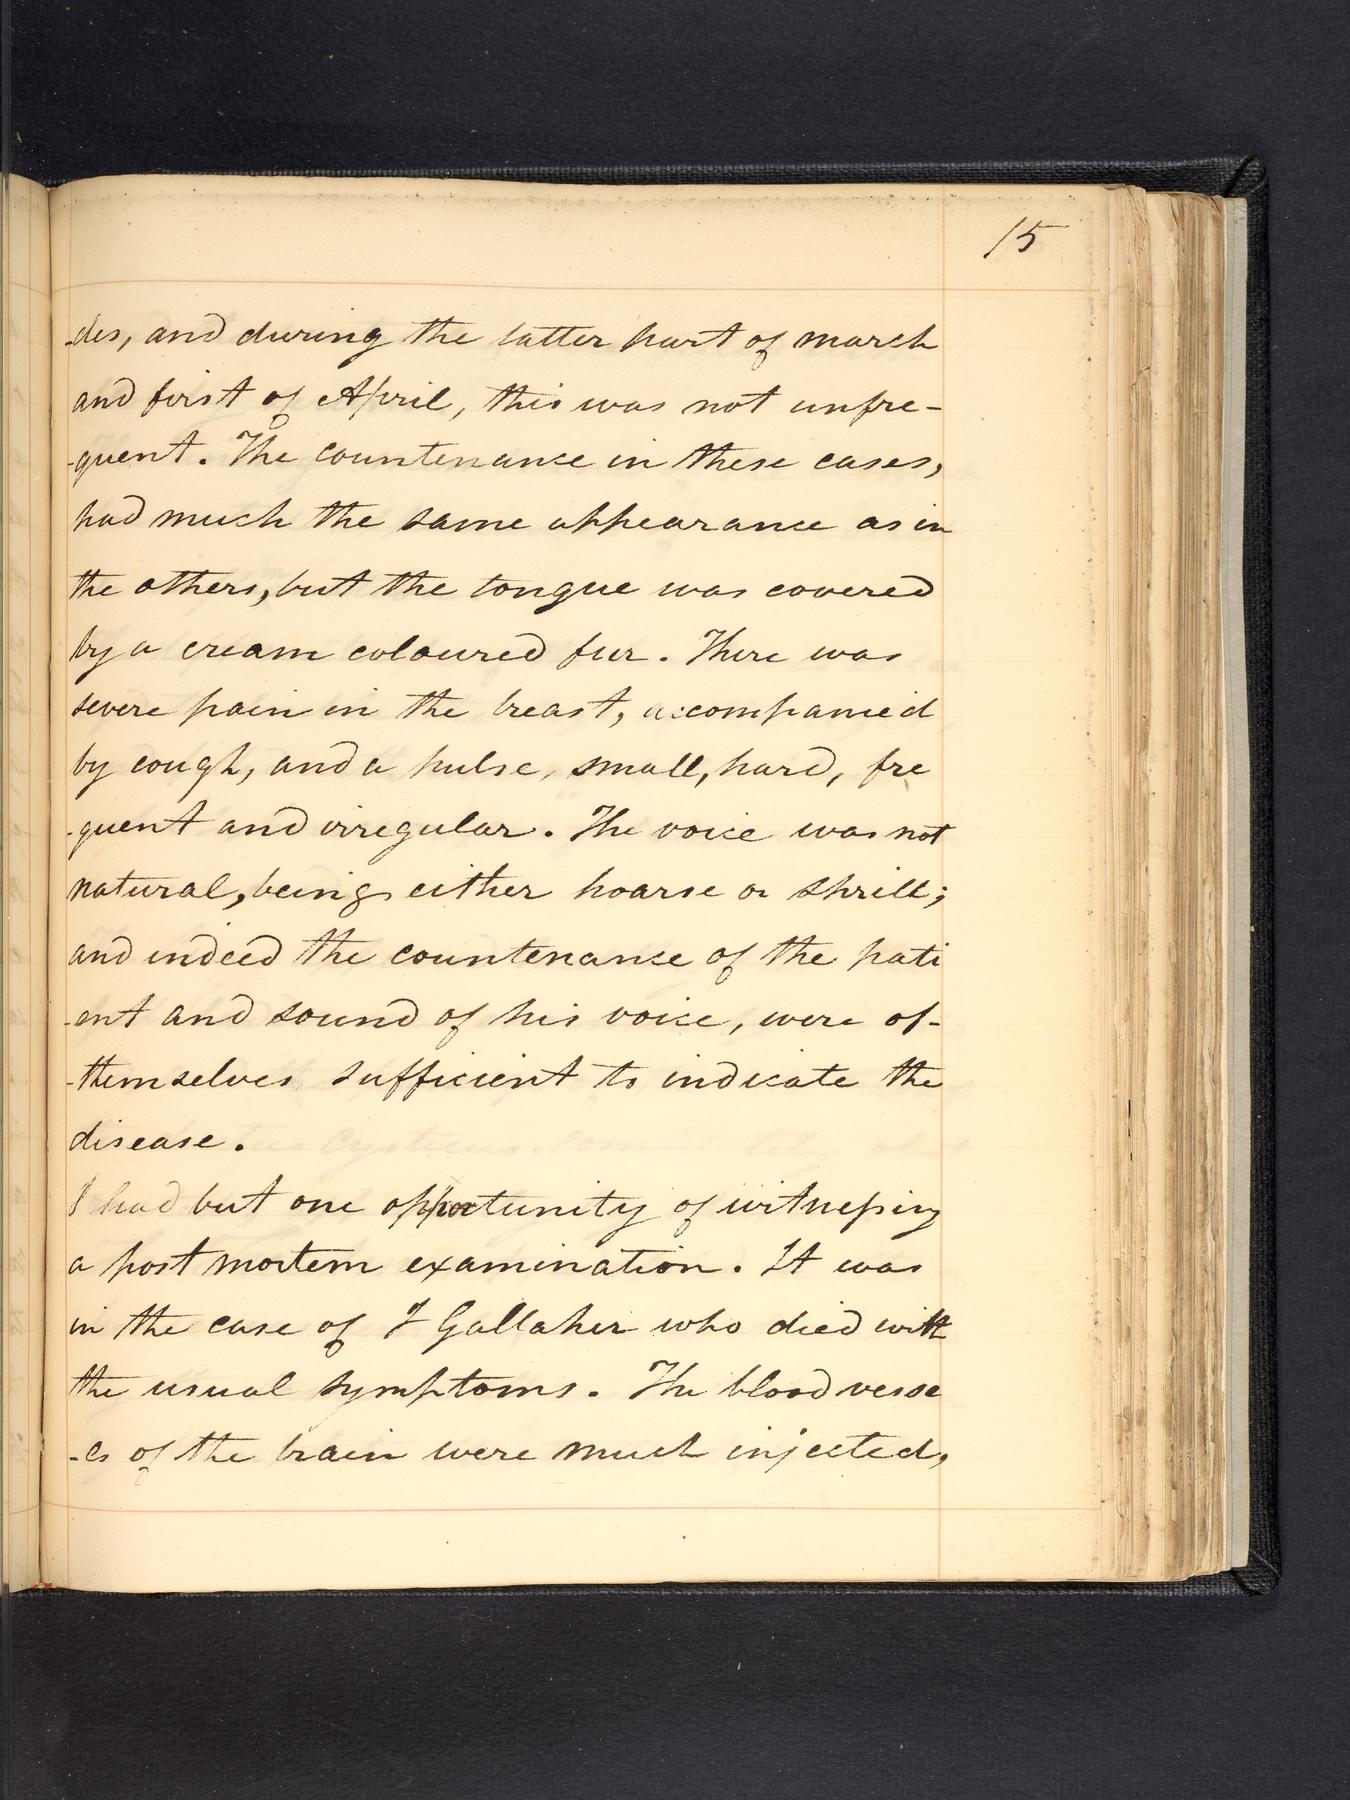 15
-des, and during the latter part of march
and first of April, this was not unfre-
-quent. The countenance in these cases,
had much the same appearance as in
the others, but the tongue was covered
by a cream coloured fur. There was
severe pain in the breast, accompanied
by cough, and a pulse, small, hard, fre
-quent and irregular. The voice was not
natural, being either hoarse or shrill;
and indeed the countenance of the pati
-ent and sound of his voice, were of-
-themselves sufficient to indicate the
disease.
I had but one opportunity of witnessing
a post mortem examination. It was
in the case of J Gallaher who died with
the usual symptoms. The blood vesse
-ls of the brain were much injected,